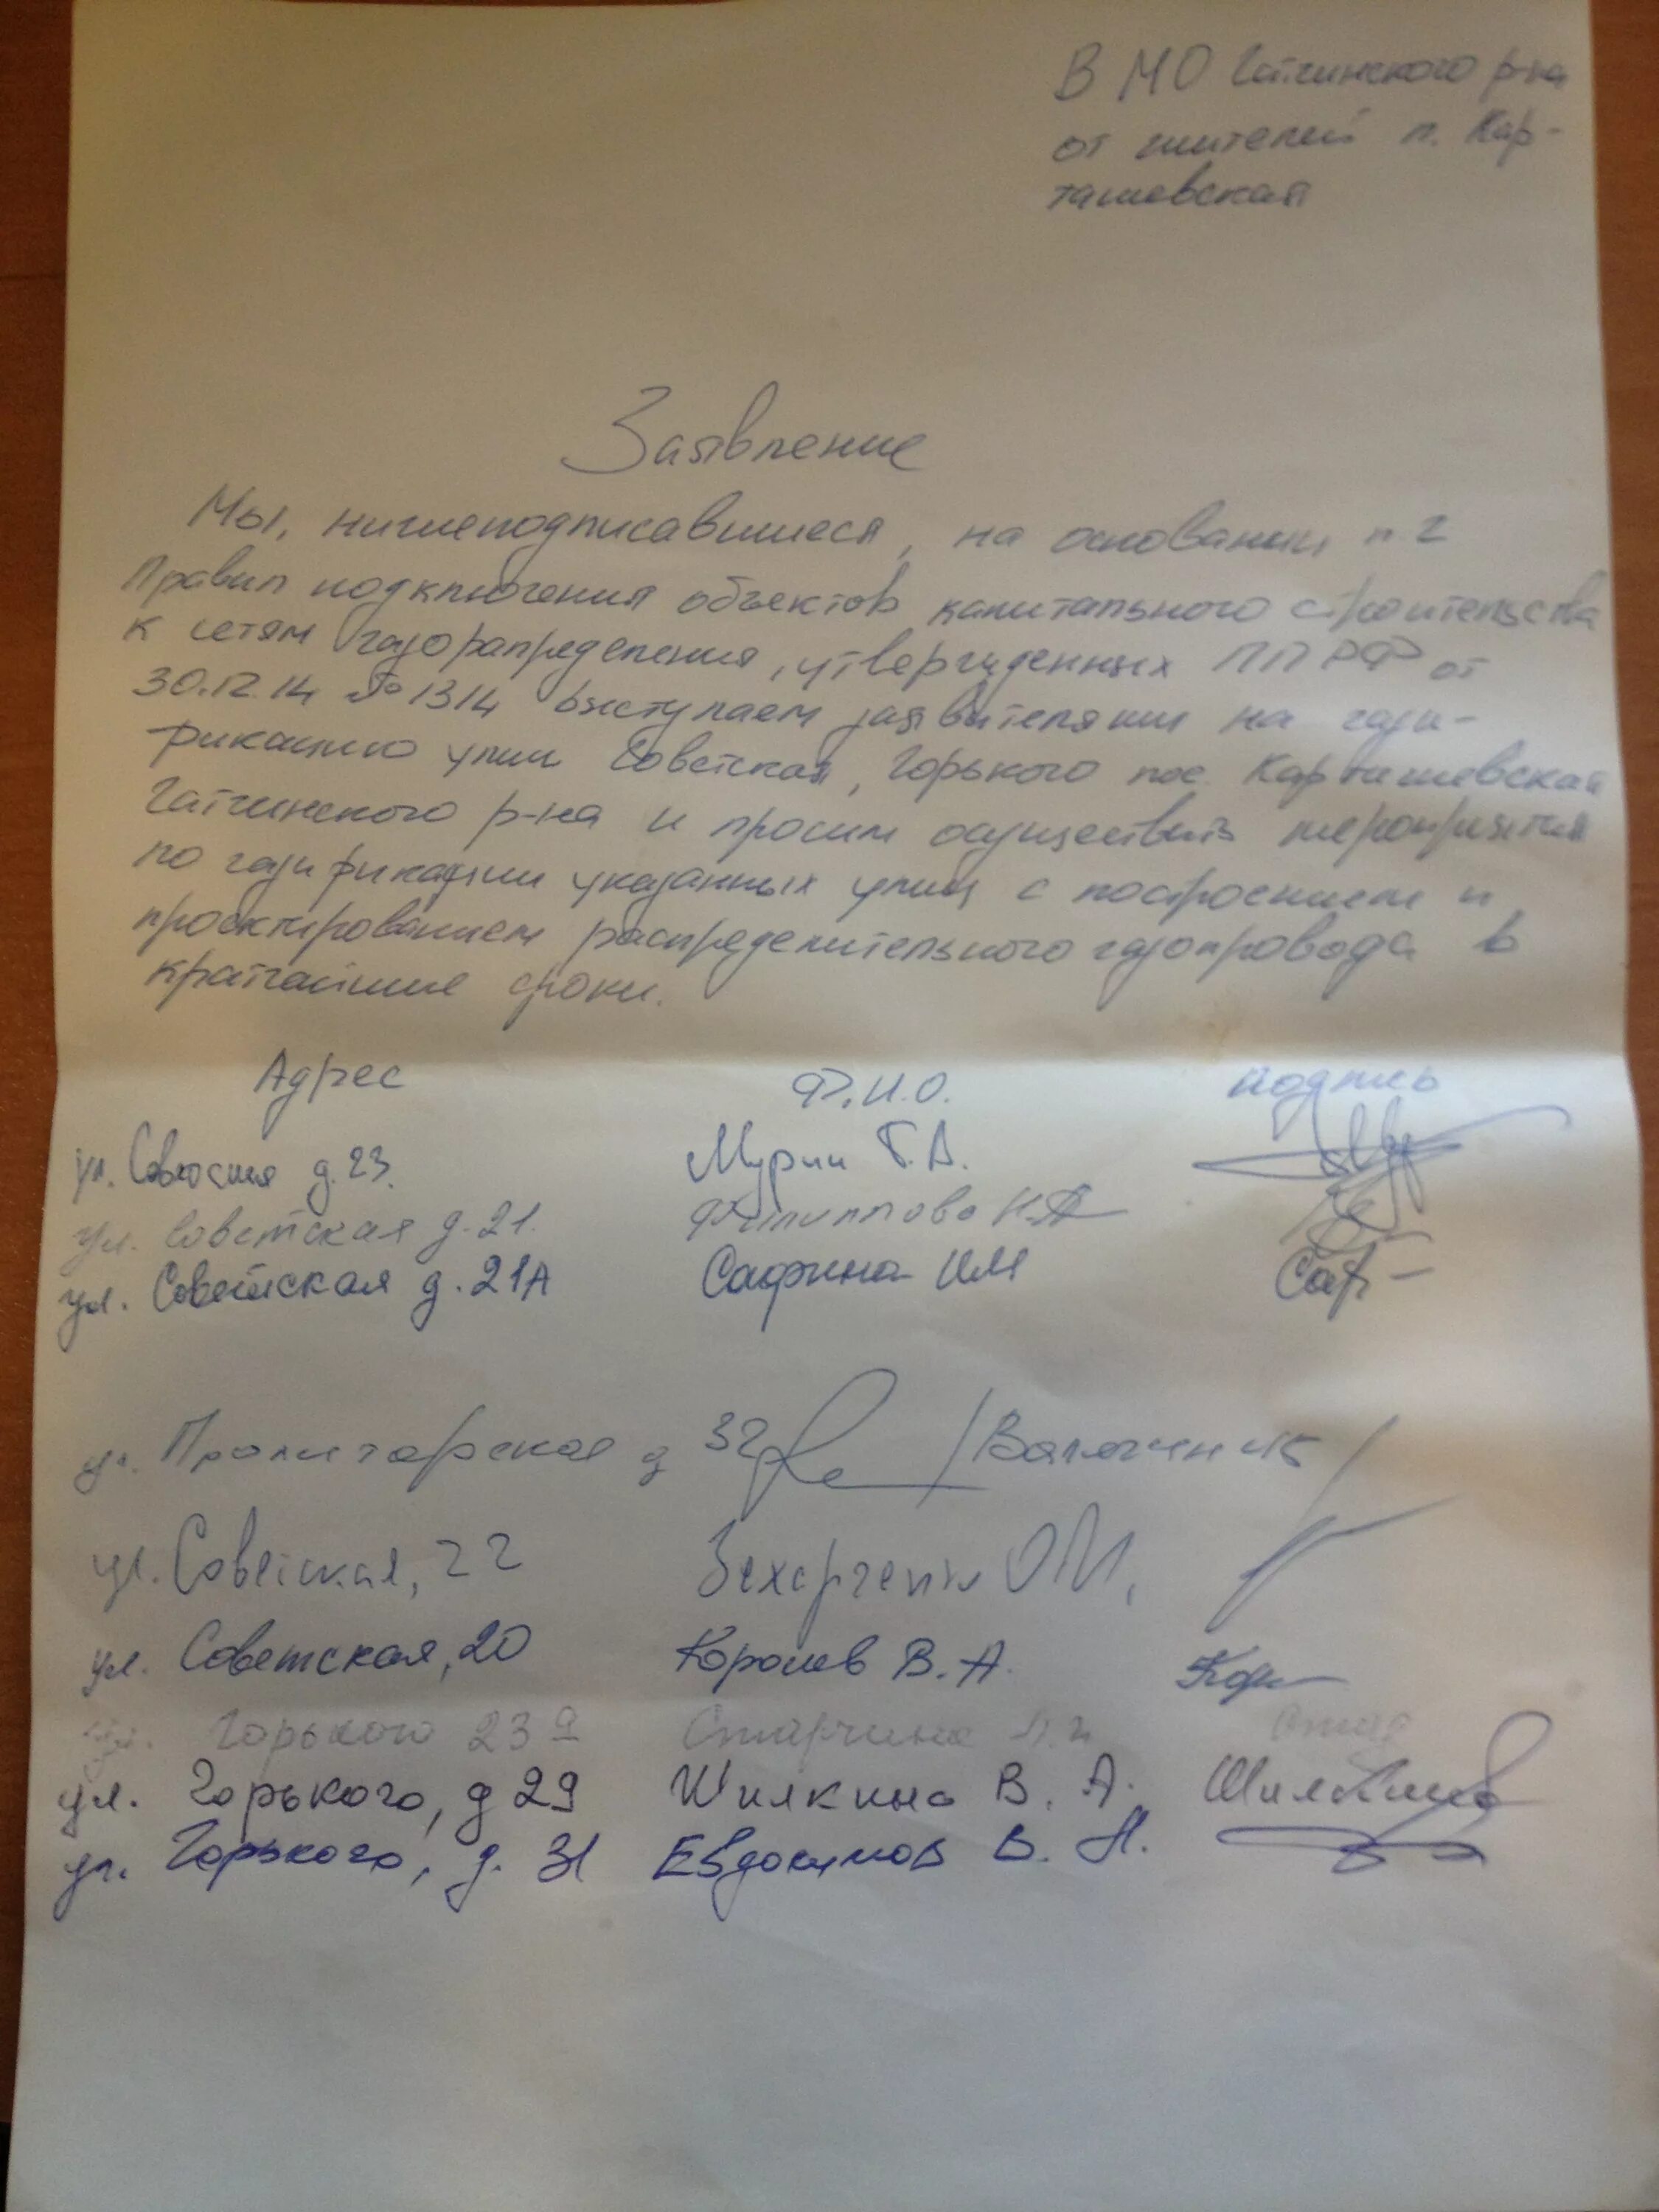 В МО Гатчинского р-на
от жителей п. Кар-
ташевская
Заявление
Мы, нижеподписавшиеся, на основании п 2
Правил подключения объектов капитального строительства
к сетям газорапределения, утвержденных ПП РФ от
30.12.14 № 1314 выступаем заявителями на гази-
фикацию улиц Советская, Горького пос. Карташевская
Гатчинского р-на и просим осуществить мероприятия
по газификации указанных улиц с построением и
проектированием распределительного газопровода в
кратчайшие сроки.
Адрес Ф.И.О. подпись
ул. Советская д. 23. Мурин Г.А.
ул. Советская д. 21. Филиппова Н.А
ул. Советская д. 21А Сафина И.М Саф
ул. Пролетарская д 32
ул. Советская, 22 Захарченко О.И.
ул. Советская, 20 Королев В. А. Кор
ул. Горького 23а Старчина
ул. Горького, д 29 Шилкина В. А. Шилкина
ул. Горького, д. 31 Евдокимов В. Н.